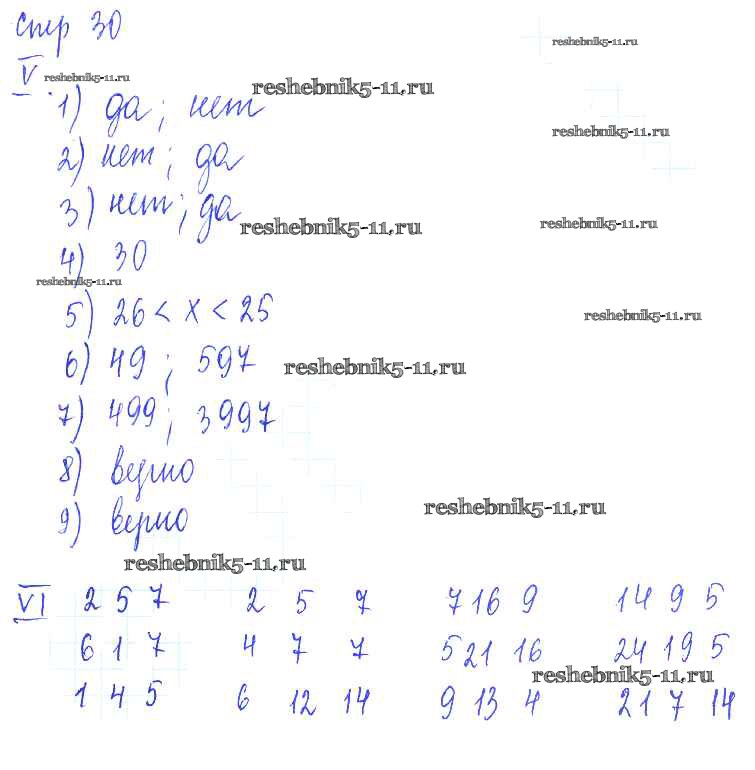 стр 30
reshebnik5-11.ru
V reshebnik5-11.ru
reshebnik5-11.ru
1) да; нет
reshebnik5-11.ru
2) нет; да
3) нет; да
reshebnik5-11.ru
reshebnik5-11.ru
4) 30
reshebnik5-11.ru
5) 26 < x < 25
reshebnik5-11.ru
6) 49; 597
reshebnik5-11.ru
7) 499; 3997
8) верно
9) верно
reshebnik5-11.ru
reshebnik5-11.ru
VI 2 5 7 2 5 7 7 16 9 14 9 5
6 1 7 4 7 7 5 21 16 24 19 5
reshebnik5-11.ru
1 4 5 6 12 14 9 13 4 21 7 14